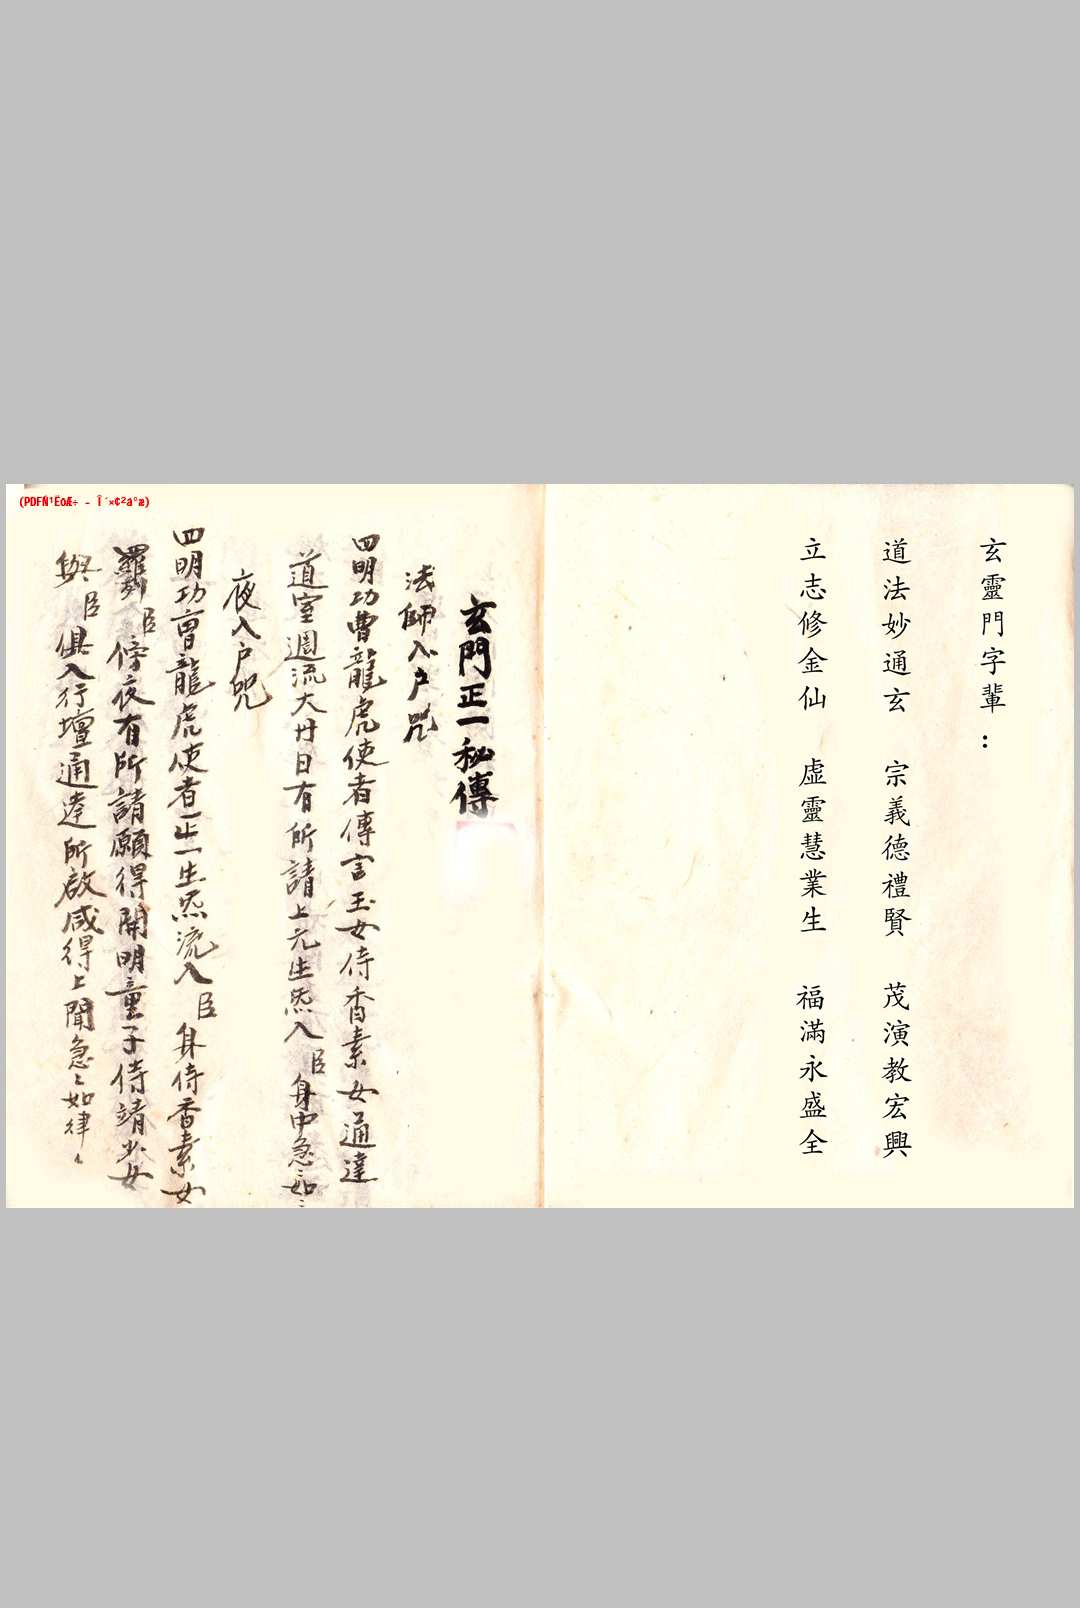 (PDFÑ¹ËõÆ÷ - Î´×¢²á°æ)
玄靈門字輩：
道法妙通玄　宗義德禮賢　茂演教宏興
立志修金仙　虛靈慧業生　福滿永盛全
玄門正一秘傳
法師入户咒
四明功曹龍虎使者傳言玉女侍香素女通達
道室週流大丹日有所請上元生炁入臣身中急〻如〻
夜入户咒
四明功曹龍虎使者正一生炁流入臣身侍香素女
羅列臣傍夜有所請願得開明童子侍靖少女
與臣俱入行壇通達所啟咸得上聞急〻如律〻